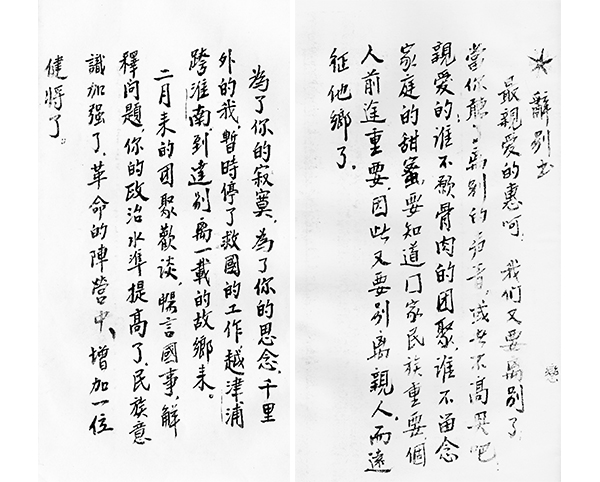 ★ 辭别书
最親愛的惠呵，我们又要离别了，
當你聽了离别的声音，或者不高兴吧，
親愛的，谁不願骨肉的团聚，谁不留念
家庭的甜蜜，要知道囗家民族重要，個
人前途重要，因此又要别离親人，而遠
征他鄉了。
為了你的寂寞，為了你的思念，千里
外的我，暫時停了救國的工作，越津浦
跨淮南，到達别离一載的故鄉来。
二月来的团聚歡谈，暢言國事，解
釋问題，你的政治水準提高了，民族意
識加强了，革命的陣營中，增加一位
健將了。